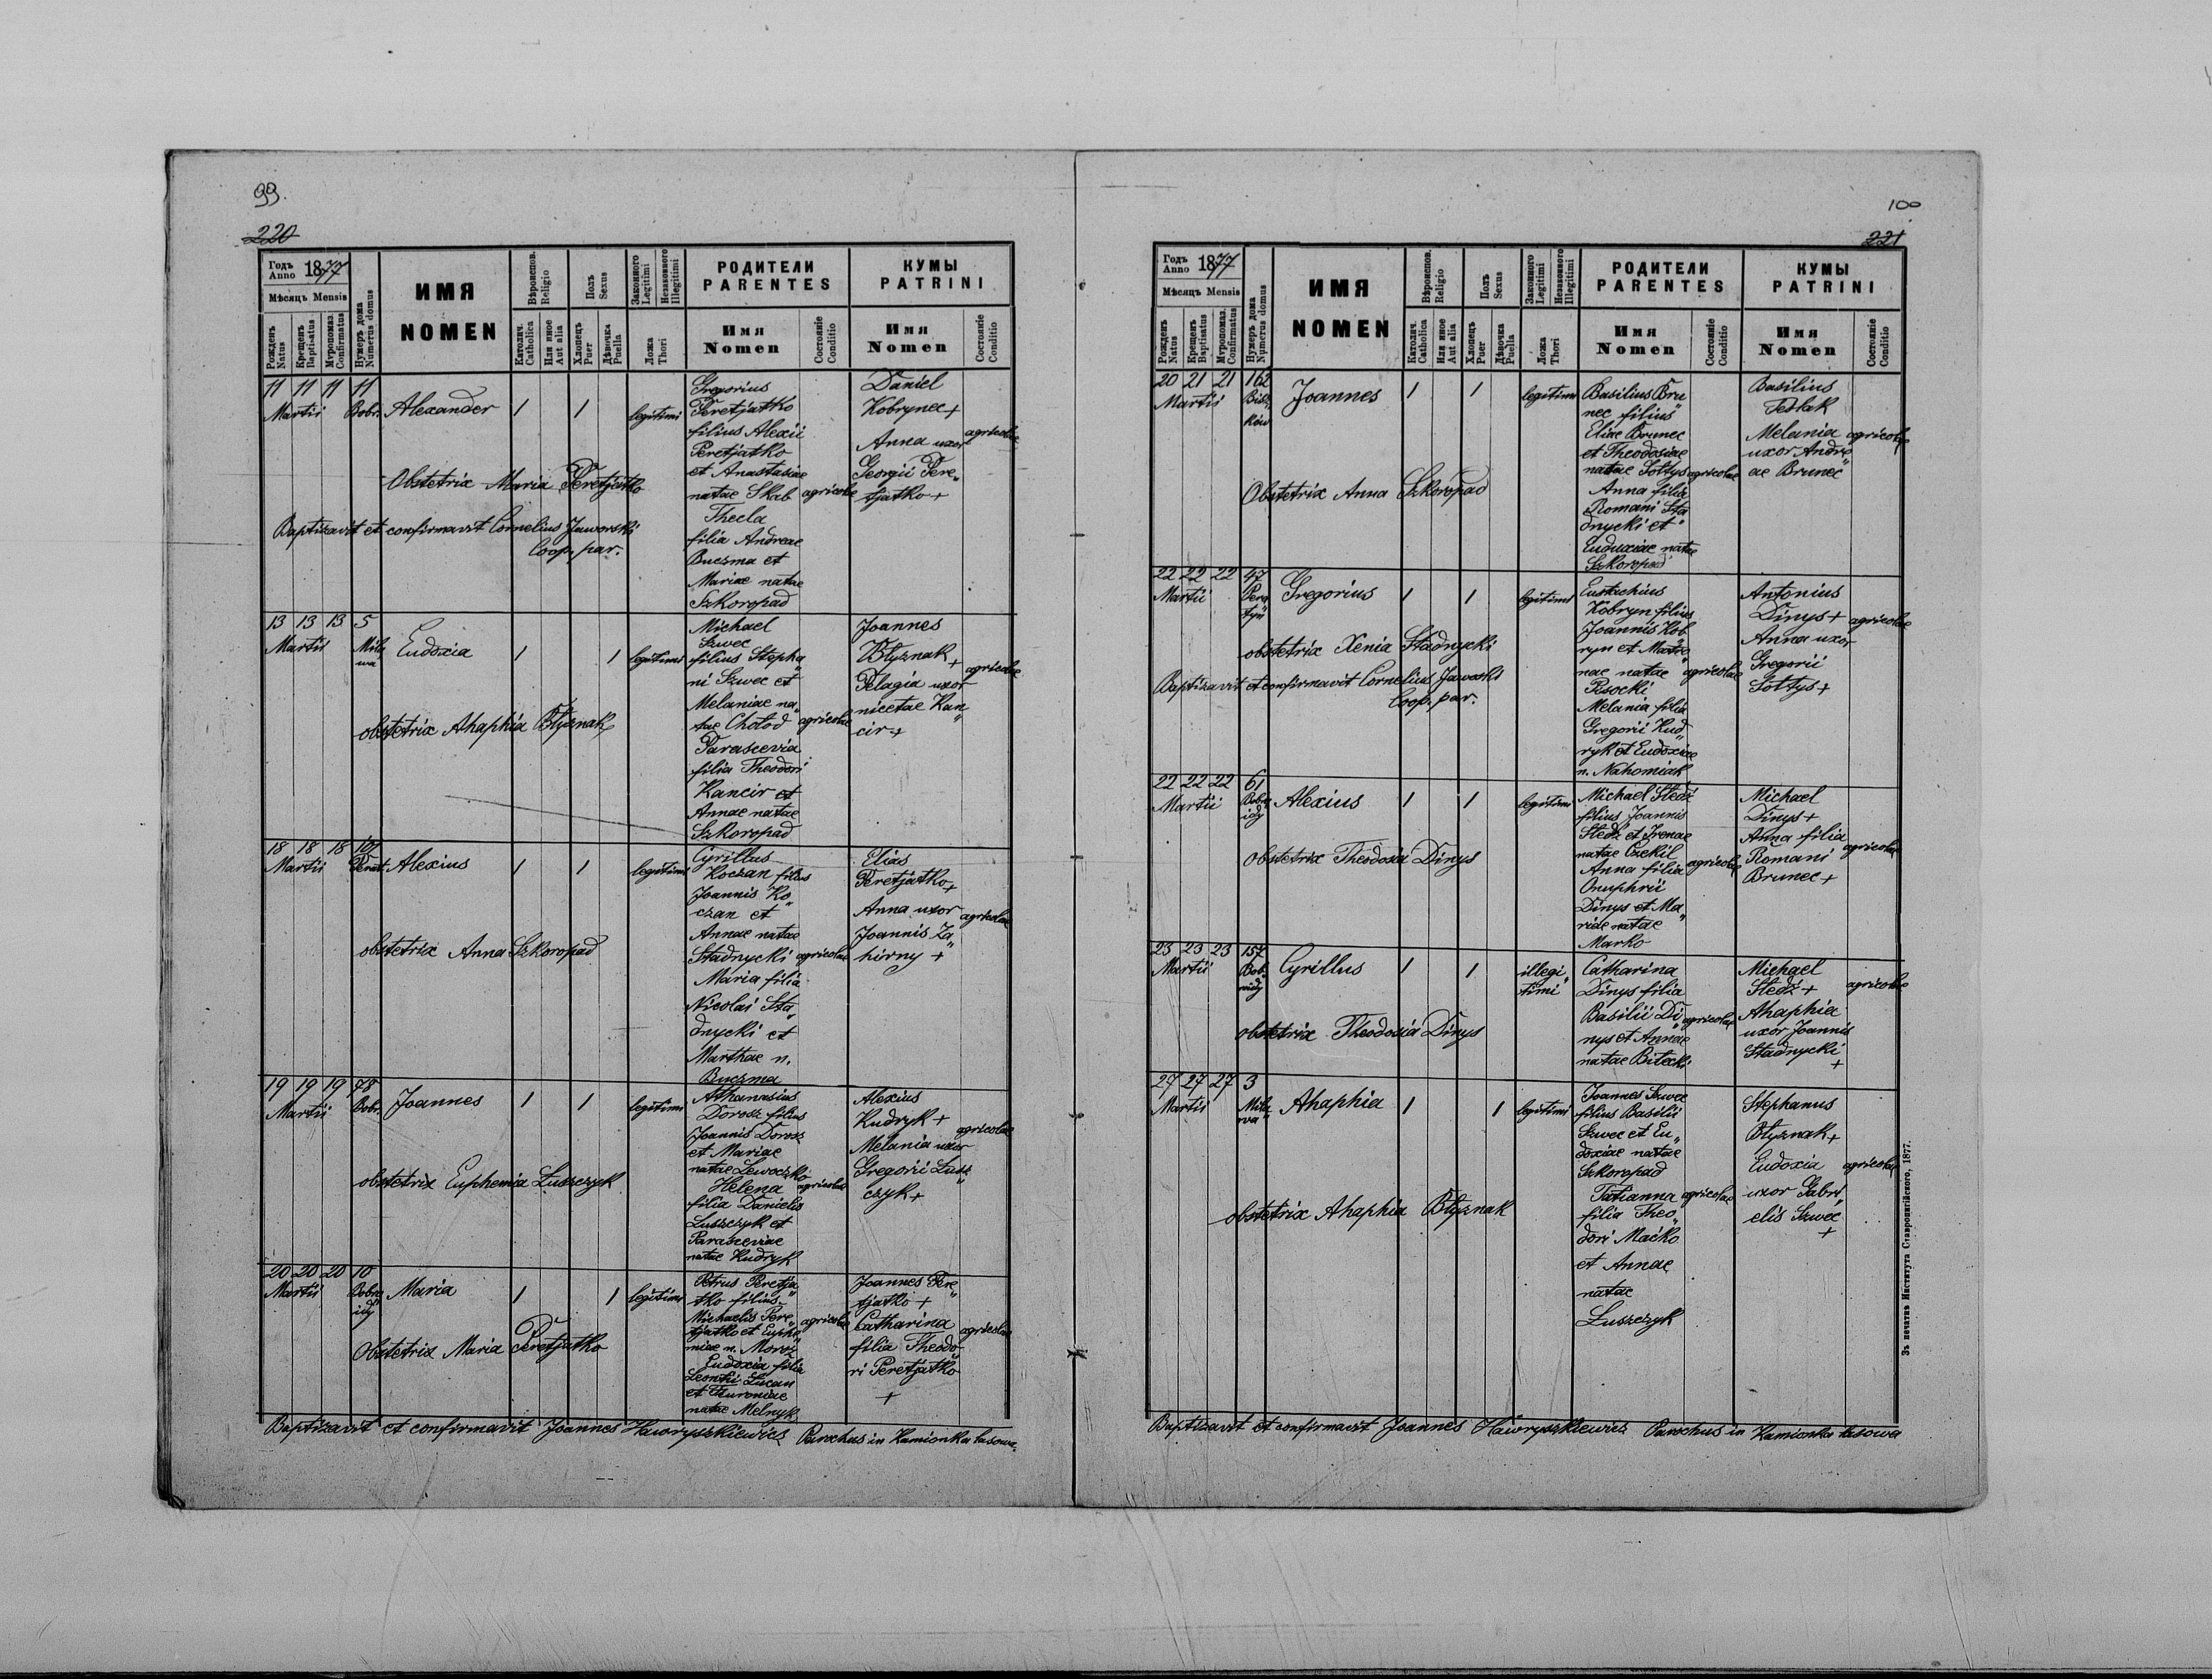 99.
220
Годъ Anno 1877
Мѣсяцъ Mensis
Рожденъ Natus
Крещенъ Baptisatus
Мѵропомаз. Confirmatus
Нумеръ дома Numerus domus
ИМЯ
NOMEN
Вѣроиспов. Religio
Католич. Catholica
Или иное Aut alia
Полъ Sexus
Хлопецъ Puer
Дѣвочка Puella
Законного Legitimi
Незаконного Illegitimi
Ложа Thori
РОДИТЕЛИ
PARENTES
Имя Nomen
Состояніе Conditio
КУМЫ
PATRINI
Имя Nomen
Состояніе Conditio
11 11 11 11
Martii Bobr. Alexander 1 1 legitimi
Gregorius
Peretjatko
filius Alexii
Peretjatko
et Anastasiae
natae Skab agricolae
Thecla
filia Andreae
Buczma et
Mariae natae
Szkoropad
Daniel
Kobrynec +
Anna uxor agricolae
Georgii Pere„
tjatko +
Obstetrix Maria Peretjatko
Baptizavit et confirmavit Cornelius Jaworski
Coop. par.
13 13 13 5
Martii Mila„ wa Eudoxia 1 1 legitimi
Michael
Szwec
filius Stepha„
ni Szwec et
Melaniae na„
tae Chołod agricolae
Parascevia
filia Theodori
Kancir et
Annae natae
Szkoropad
Joannes
Błyznak +
Pelagia uxor agricolae
nicetae Kan„
cir +
obstetrix Ahaphia Błyznak
18 18 18 107
Martii Perat. Alexius 1 1 legitimi
Cyrillus
Koczan filius
Joannis Ko„
czan et
Annae natae
Stadnycki agricolae
Maria filia
Nicolai Sta„
dnycki et
Marthae n.
Buczma
Elias
Peretjatko +
Anna uxor agricolae
Joannis Za„
hirny +
obstetrix Anna Szkoropad
19 19 19 78
Martii Bobr. Joannes 1 1 legitimi
Athanasius
Dorosz filius
Joannis Dorosz
et Mariae
natae Lewoczko
Helena agricolae
filia Danielis
Luszczyk et
Parasceviae
natae Kudryk
Alexius
Kudryk +
agricolae
Melania uxor
Gregorii Lusz„
czyk +
obstetrix Euphemia Luszczyk
20 20 20 10
Martii Bobro„ idy Maria 1 1 legitimi
Petrus Peretja„
tko filius
Michaelis Pere„ agricolae
tjatko et Euphe„
miae n. Moroz
Eudoxia filia
Leontii Lucan
et Fewroniae
natae Melnyk
Joannes Pere„
tjatko +
Catharina agricolae
filia Theodo„
ri Peretjatko
+
Obstetrix Maria Peretjatko
Baptizavit et confirmavit Joannes Hawryszkiewicz Parochus in Kamionka łasowa.
100
221
Годъ Anno 1877
Мѣсяцъ Mensis
Рожденъ Natus
Крещенъ Baptisatus
Мѵропомаз. Confirmatus
Нумеръ дома Numerus domus
ИМЯ
NOMEN
Вѣроиспов. Religio
Католич. Catholica
Или иное Aut alia
Полъ Sexus
Хлопецъ Puer
Дѣвочка Puella
Законного Legitimi
Незаконного Illegitimi
Ложа Thori
РОДИТЕЛИ
PARENTES
Имя Nomen
Состояніе Conditio
КУМЫ
PATRINI
Имя Nomen
Состояніе Conditio
20 21 21 162
Martii ków Joannes 1 1 legitimi
Basilius Bru„
nec filius
Eliae Brunec
et Theodosiae
natae Sołtys agricolae
Anna filia
Romani Sta„
dnycki et
Euduxiae natae
Szkoropad
Basilius
Fedłak
Melania agricolae
uxor Andre„
ae Brunec
Obstetrix Anna Szkoropad
22 22 22 47
Martii Pera„ tyn Gregorius 1 1 legitimi
Eustachius
Kobryn filius
Joannis Kob„
ryn et Matro„
nae natae agricolae
Pisocki
Melania filia
Gregorii Kud„
ryk et Eudoxiae
n. Nahorniak
Antonius
Dinys + agricolae
Anna uxor
Gregorii
Sołtys +
obstetrix Xenia Stadnycki
Baptizavit et confirmavit Cornelius Jaworski
Coop. par.
22 22 22 61
Martii Bobro„ idy Alexius 1 1 legitimi
Michael Stedź
filius Joannis
Stedź et Irenae
natae Czekil agricolae
Anna filia
Onuphrii
Dinys et Ma„
riae natae
Marko
Michael
Dinys +
Anna filia agricolae
Romani
Brunec +
obstetrix Theodosia Dinys
23 23 23 157
Martii Bob„ roidy Cyrillus 1 1 illegi„ timi
Catharina
Dinys filia
Basilii Di„ agricolae
nys et Annae
natae Bilecki
Michael
Stedź + agricolae
Ahaphia
uxor Joannis
Stadnycki
+
obstetrix Theodosia Dinys
27 27 27 3
Martii Mila„ wa Ahaphia 1 1 legitimi
Joannes Szwec
filius Basilii
Szwec et Eu„
doxiae natae
Szkoropad
Tatianna agricolae
filia Theo„
dori Maćko
et Annae
natae
Luszczyk
Stephanus
Błyznak +
Eudoxia agricolae
uxor Gabri„
elis Szwec
+
obstetrix Ahaphia Błyznak
Baptizavit et confirmavit Joannes Hawryszkiewicz Parochus in Kamionka łasowa
Зъ печатнѣ Института Ставропигійского, 1877.